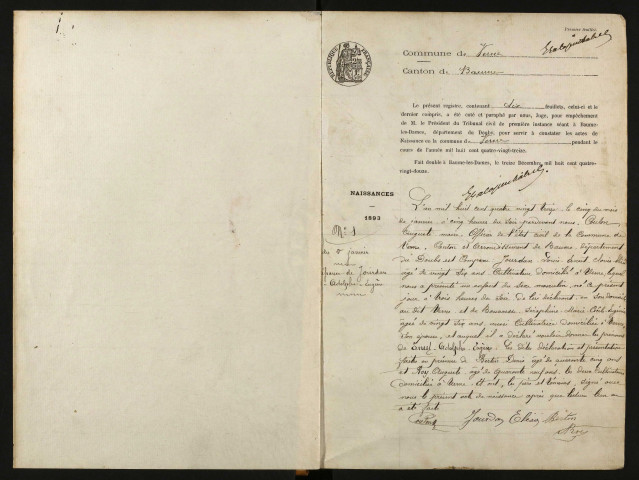 Premier feuillet
RÉPUBLIQUE FRANÇAISE
Commune de Verne
Canton de Baume
Le présent registre, contenant six feuillets, celui-ci et le
dernier compris, a été coté et paraphé par nous, Juge, pour empêchement
de M. le Président du Tribunal civil de première instance séant à Baume-
les-Dames, département du Doubs, pour servir à constater les actes de
Naissance de la commune de Verne pendant le
cours de l'année mil huit cent quatre-vingt-treize.
Fait double à Baume-les-Dames, le treize Décembre mil huit cent quatre-
vingt-douze.
NAISSANCES
1893
N° 1
du 5 janvier
Jourdon
Adolphe-Eugène
L'an mil huit cent quatre vingt treize le cinq du mois
de janvier à cinq heures du soir pardevant nous
maire Officier de l'état civil de la Commune de
Verne, Canton et Arrondissement de Baume, département
du Doubs est comparu Jourdon Louis
âgé de vingt six ans Cultivateur domicilié à Verne, lequel
nous a présenté un enfant du sexe masculin, né le présent
jour à trois heures du soir, de lui déclarant, en son domicile
au dit Verne et de Joséphine Marie
âgée de vingt six ans, aussi Cultivatrice domiciliée à Verne,
son épouse, et auquel il a déclaré vouloir donner les prénoms
de Adolphe Eugène. Les dites déclaration et présentation
faites en présence de Denis âgé de quarante cinq ans
et Roy Auguste, âgé de quarante neuf ans, les deux cultivateurs
domiciliés à Verne. Et ont, les père et témoins, signé avec
nous le présent acte de naissance après que lecture leur en
a été faite
Jourdon
Roy